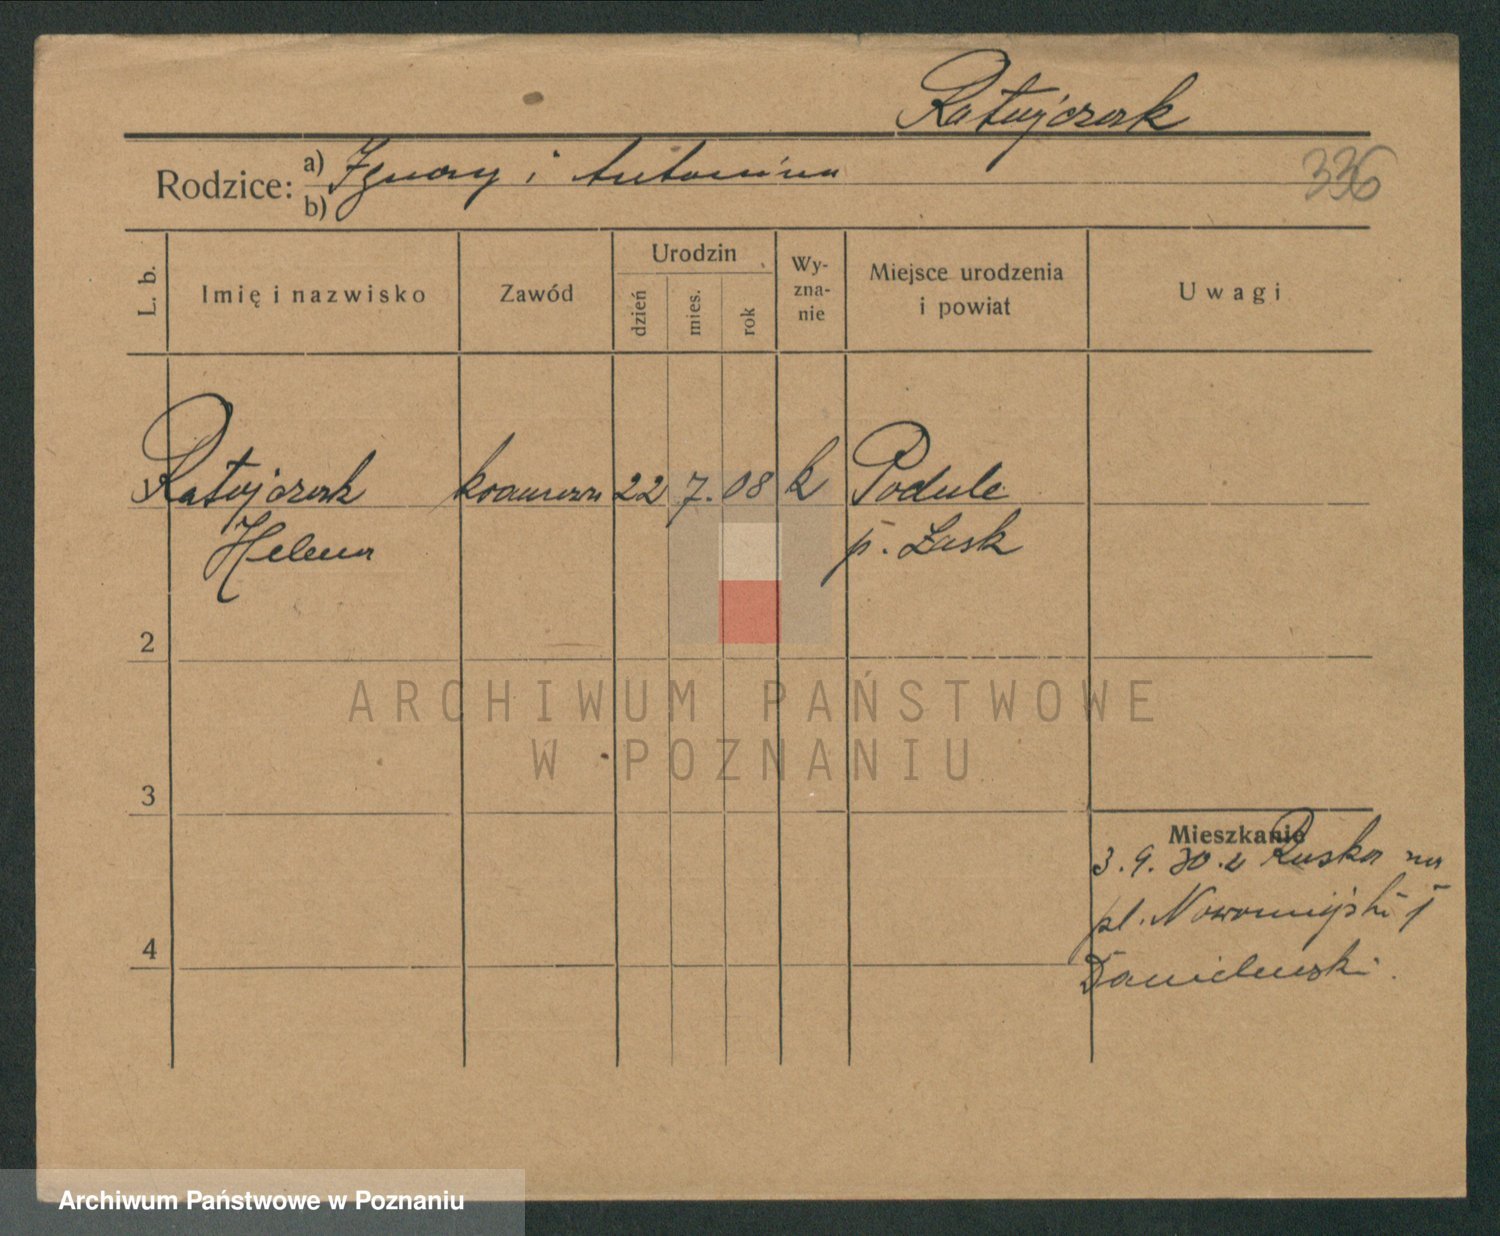 Ratajczak
Rodzice: a) Ignacy i Antonina
b)
336
L. b.
Imię i nazwisko
Zawód
Urodzin
dzień
mies.
rok
Wy-
zna-
nie
Miejsce urodzenia
i powiat
Uwagi
Ratajczak 22 7. 08 k Podule
Helena p. Łask
2
3
4
Mieszkanie
3. 9. 30. z Ruska na
pl. Nowomiejski
Danielewski.
ARCHIWUM PAŃSTWOWE
W POZNANIU
Archiwum Państwowe w Poznaniu